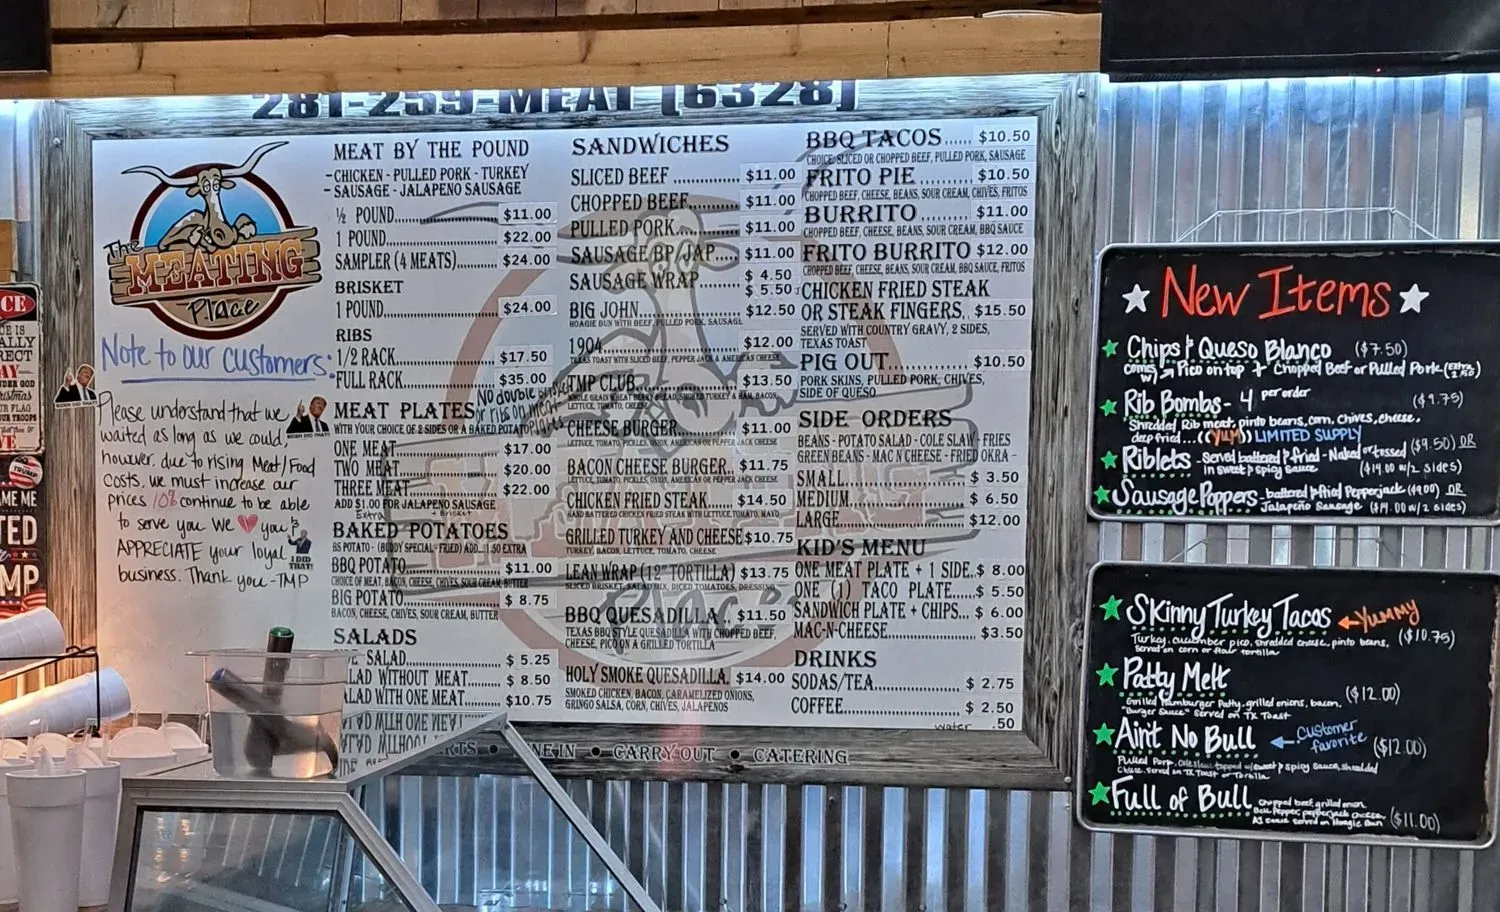 281-259-MEAT (6328)
The
MEATING
Place
Note to our customers:
Please understand that we
waited as long as we could,
however, due to rising Meat/Food
costs, we must increase our
prices 10% continue to be able
to serve you. We ♥ you &
APPRECIATE your loyal
business. Thank you - TMP
I DID
THAT!
MEAT BY THE POUND
- CHICKEN - PULLED PORK - TURKEY
- SAUSAGE - JALAPENO SAUSAGE
½ POUND $11.00
1 POUND $22.00
SAMPLER (4 MEATS) $24.00
BRISKET
1 POUND $24.00
RIBS
1/2 RACK $17.50
FULL RACK $35.00
No double brisket
or ribs on meat
plates
MEAT PLATES
WITH YOUR CHOICE OF 2 SIDES OR A BAKED POTATO
ONE MEAT $17.00
TWO MEAT $20.00
THREE MEAT $22.00
ADD $1.00 FOR JALAPENO SAUSAGE
Extra + Brisket
BAKED POTATOES
BS POTATO - (BUDDY SPECIAL - FRIED) ADD...1.50 EXTRA
BBQ POTATO $11.00
CHOICE OF MEAT, BACON, CHEESE, CHIVES, SOUR CREAM, BUTTER
BIG POTATO $ 8.75
BACON, CHEESE, CHIVES, SOUR CREAM, BUTTER
SALADS
SALAD $ 5.25
ALAD WITHOUT MEAT $ 8.50
ALAD WITH ONE MEAT $10.75
SANDWICHES
SLICED BEEF $11.00
CHOPPED BEEF $11.00
PULLED PORK $11.00
SAUSAGE BP/JAP $11.00
SAUSAGE WRAP $ 4.50
$ 5.50
BIG JOHN $12.50
HOAGIE BUN WITH BEEF, PULLED PORK, SAUSAGE
1904 $12.00
TEXAS TOAST WITH SLICED BEEF, PEPPER JACK & AMERICAN CHEESE
TMP CLUB $13.50
WHOLE GRAIN WHEAT BERRY BREAD, SMOKED TURKEY & HAM, BACON,
LETTUCE, TOMATO, CHEESE
CHEESE BURGER $11.00
LETTUCE, TOMATO, PICKLES, ONION, AMERICAN OR PEPPER JACK CHEESE
BACON CHEESE BURGER $11.75
LETTUCE, TOMATO, PICKLES, ONION, AMERICAN OR PEPPER JACK CHEESE
CHICKEN FRIED STEAK $14.50
HAND BATTERED CHICKEN FRIED STEAK WITH LETTUCE, TOMATO, MAYO
GRILLED TURKEY AND CHEESE $10.75
TURKEY, BACON, LETTUCE, TOMATO, CHEESE
LEAN WRAP (12" TORTILLA) $13.75
SLICED BRISKET, SALAD MIX, DICED TOMATOES, DRESSING
BBQ QUESADILLA $11.50
TEXAS BBQ STYLE QUESADILLA WITH CHOPPED BEEF,
CHEESE, PICO ON A GRILLED TORTILLA
HOLY SMOKE QUESADILLA $14.00
SMOKED CHICKEN, BACON, CARAMELIZED ONIONS,
GRINGO SALSA, CORN, CHIVES, JALAPENOS
BBQ TACOS $10.50
CHOICE SLICED OR CHOPPED BEEF, PULLED PORK, SAUSAGE
FRITO PIE $10.50
CHOPPED BEEF, CHEESE, BEANS, SOUR CREAM, CHIVES, FRITOS
BURRITO $11.00
CHOPPED BEEF, CHEESE, BEANS, SOUR CREAM, BBQ SAUCE
FRITO BURRITO $12.00
CHOPPED BEEF, CHEESE, BEANS, SOUR CREAM, BBQ SAUCE, FRITOS
CHICKEN FRIED STEAK
OR STEAK FINGERS $15.50
SERVED WITH COUNTRY GRAVY, 2 SIDES,
TEXAS TOAST
PIG OUT $10.50
PORK SKINS, PULLED PORK, CHIVES,
SIDE OF QUESO
SIDE ORDERS
BEANS - POTATO SALAD - COLE SLAW - FRIES
GREEN BEANS - MAC N CHEESE - FRIED OKRA -
SMALL $ 3.50
MEDIUM $ 6.50
LARGE $12.00
KID'S MENU
ONE MEAT PLATE + 1 SIDE $ 8.00
ONE (1) TACO PLATE $ 5.50
SANDWICH PLATE + CHIPS $ 6.00
MAC-N-CHEESE $3.50
DRINKS
SODAS/TEA $ 2.75
COFFEE $ 2.50
water .50
NE IN • CARRY OUT • CATERING
New Items
Chips & Queso Blanco ($7.50)
comes w/ → Pico on top & Chopped Beef or Pulled Pork
Rib Bombs - 4 per order ($9.75)
Shredded Rib meat, pinto beans, corn, chives, cheese,
deep fried...((YUM)) LIMITED SUPPLY
Riblets - Served battered & fried - Naked or tossed ($9.50) OR
in sweet & spicy sauce ($14.00 w/2 sides)
Sausage Poppers - battered & fried Pepperjack ($9.00) OR
Jalapeño Sausage ($14.00 w/2 sides)
Skinny Turkey Tacos ← YUMMY
Turkey, cucumber pico, shredded cheese, pinto beans, ($10.75)
served on corn or flour tortilla
Patty Melt
Grilled Hamburger Patty, grilled onions, bacon, ($12.00)
"Burger Sauce" Served on TX Toast
Aint No Bull ← customer favorite ($12.00)
Pulled Pork, coleslaw topped w/ sweet & spicy sauce, shredded
Cheese. Served on TX Toast or Tortilla
Full of Bull Chopped beef, grilled onion,
Bell Pepper, pepperjack cheese,
A1 sauce served on Hoagie Bun ($11.00)
CE
TRUMP
AME ME
TED
MP